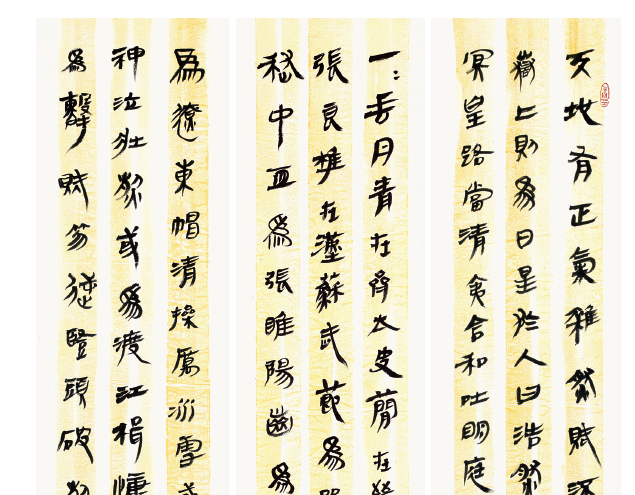 天地有正氣雜然賦
嶽上則為日星於人曰浩然
冥皇路當清夷含和吐明庭
一〻垂丹青在齊太史簡在
張良椎在漢蘇武節為
嵇中血為張睢陽齒為
為遼東帽清操厲冰雪
神泣壯烈或為渡江楫慷
為擊賊笏逆豎頭破